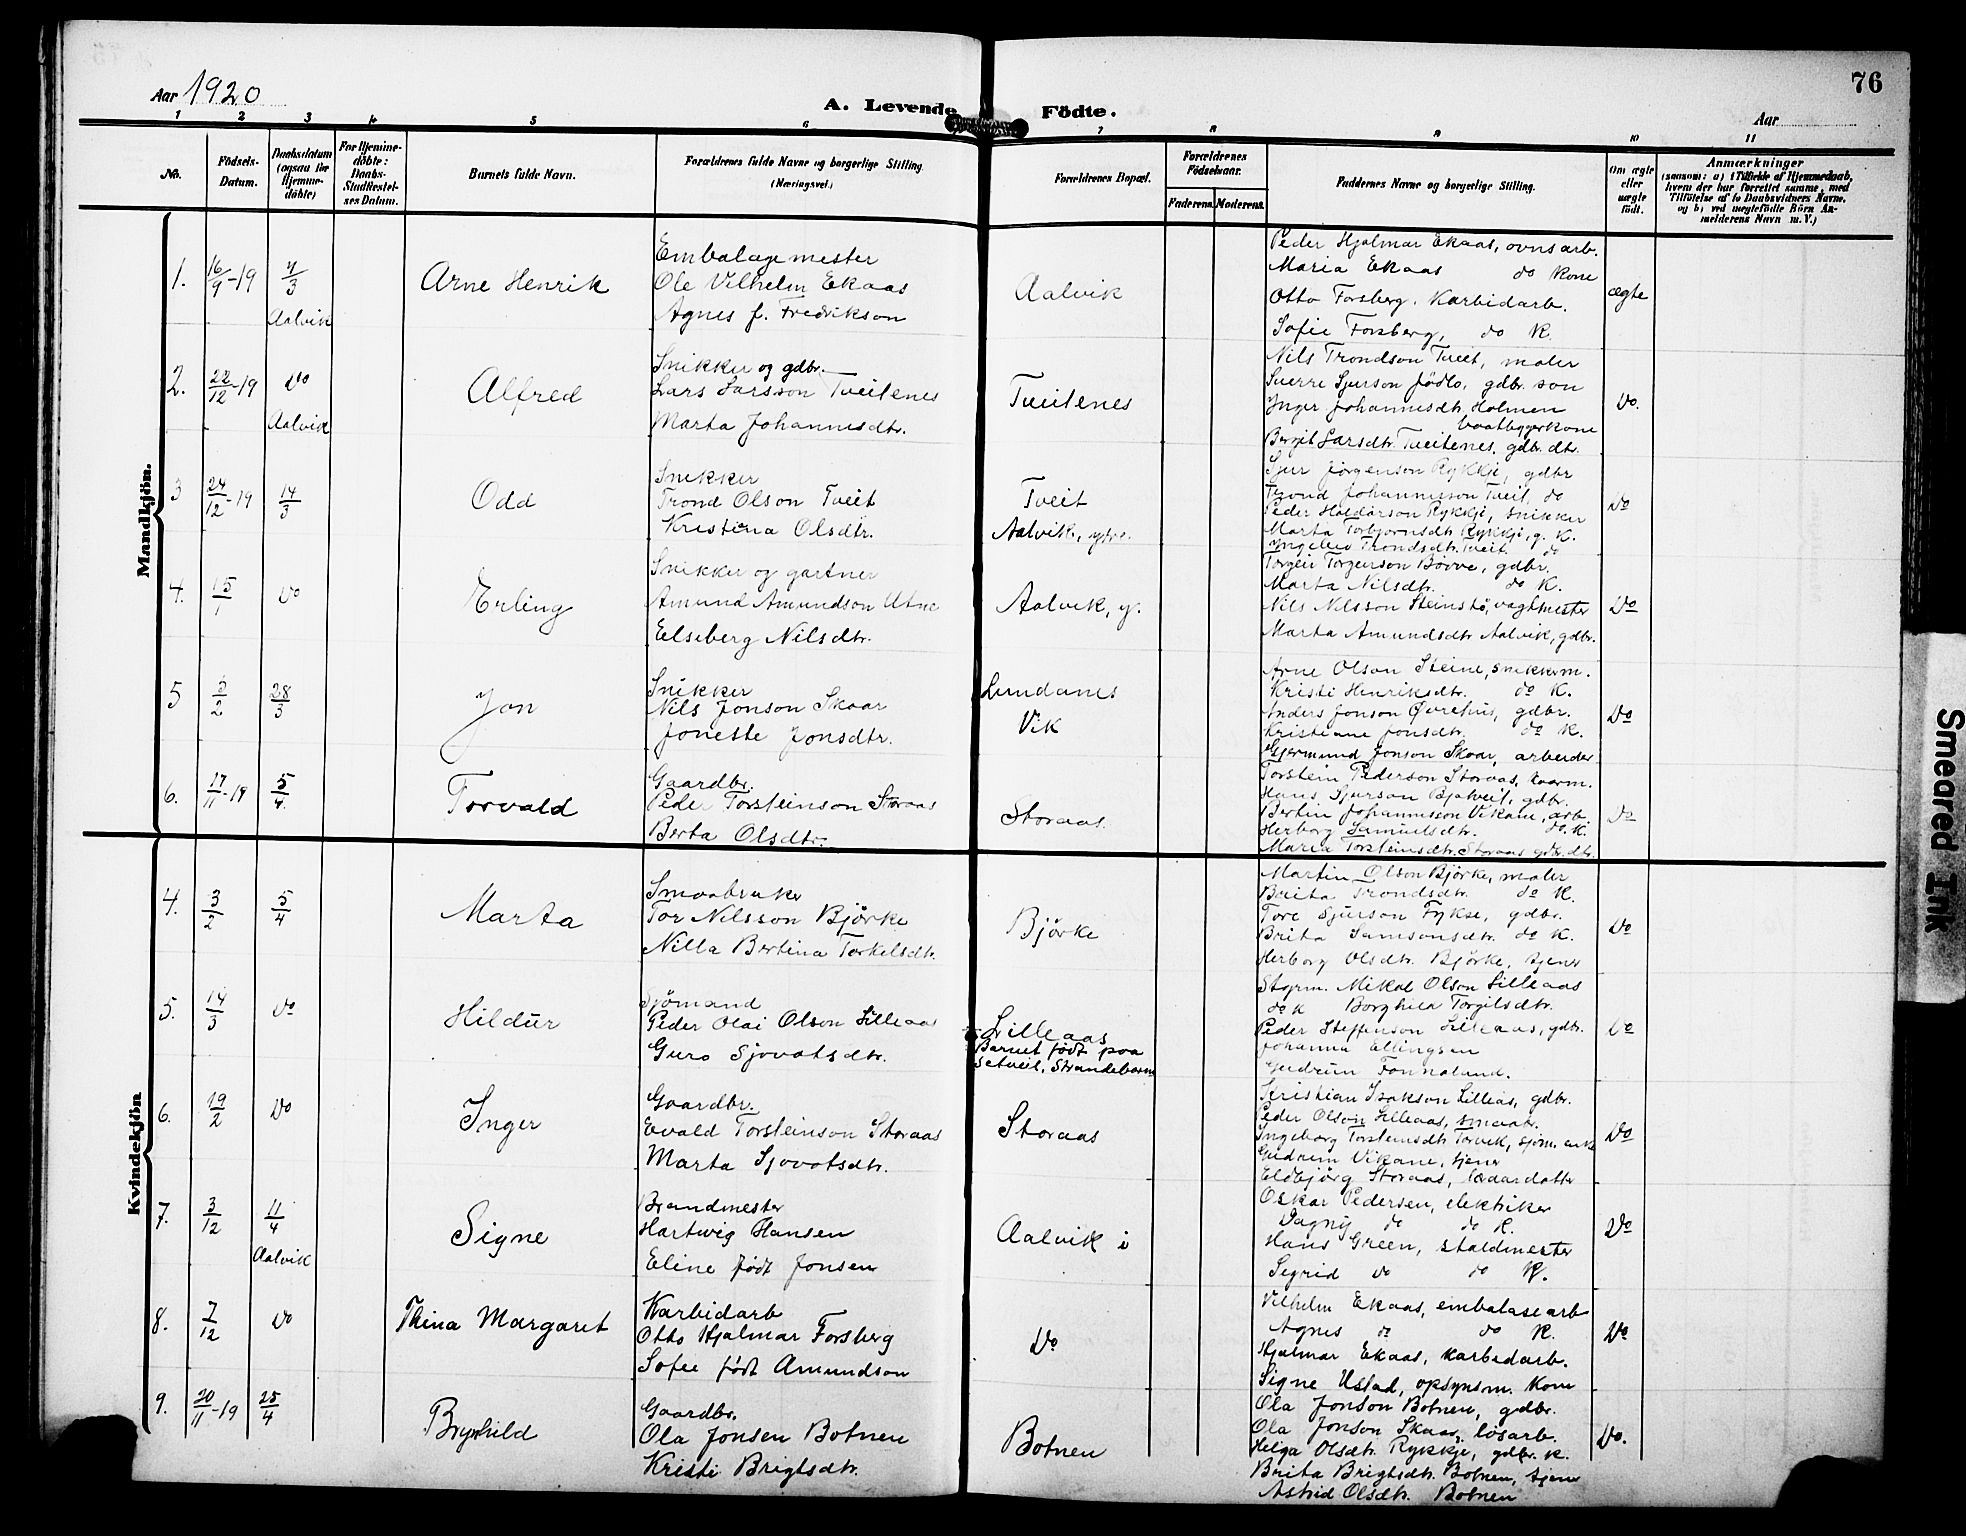 76
Aar 1920
A. Levende Födte.
Aar
1 2 3 4 5 6 7 8 9 10 11
No.
Födsels-Datum.
Daabsdatum (ogsaa for Hjemmedöbte)
For Hjemmedöbte: Daabs-Stadfestelses Datum.
Barnets fulde Navn.
Forældrenes fulde Navne og borgerlige Stilling (Næringsvei.)
Forældrenes Bopæl.
Forældrenes Födselsaar.
Faderens. Moderens.
Faddernes Navne og borgerlige Stilling.
Om ægte eller uægte født.
Anmærkninger
(saasom: a) i Tilfælde af Hjemmedaab,
hvem der har forrettet samme, med
Tilföielse af to Daabsvidners Navne,
og b) ved uægtefödte Börn An-
melderens Navn m. V.)
Mandkjön.
1. 16/9-19 7/3 Aalvik
Arne Henrik
Embalagemester
Ole Vilhelm Ekaas
Agnes f. Fredrikson
Aalvik
Peder Hjalmar Ekaas, ovnsarb.
Maria Ekaas do Kone
Otto Forsberg, Karbidarb.
Sofie Forsberg, do K.
ægte
2. 22/12-19 do Aalvik
Alfred
Snikker og gdbr.
Lars Larsson Tveitenes
Marta Johannesdtr.
Tveitenes
Nils Trondson Tveit, maler
Sverre Sjurson Jødlo, gdbr. son
Inger Johannesdtr. Holmen
baatbyggerkone
Bergit Larsdtr. Tveitenes, gdbr. dtr.
Do.
3 24/12-19 14/3
Odd
Snikker
Trond Olson Tveit
Kristina Olsdtr.
Tveit
Aalvik, ytre.
Sjur Jørgenson Rykkje, gdbr
Trond Johannesson Tveit, do
Peder Haldorson Rykkje, snikker
Marta Torbjornsdtr Rykkje, g. K.
Ingebor Trondsdtr. Tveit. do
Do
4. 15/1 do
Erling
Snikker og gartner
Amund Amundson Utne
Elseberg Nilsdtr.
Aalvik, y.
Torgeir Torgeirson Børve, gdbr.
Marta Nilsdtr. do K.
Nils Nilsson Steinstø, vagtmester
Marta Amundsdtr Aalvik, gdbr.
Do
5 3/2 28/3
Jon
Snikker
Nils Jonson Skaar
Jonette Jonsdtr.
Lundanes
Vik
Arne Olson Steine, snikkerm.
Kristi Henriksdtr. do K.
Anders Jonson Øvrehus, gdbr.
Kristiane Jonsdtr. do K.
Gjermund Jonson Skaar, arbeider
Do
6. 17/11-19 5/4.
Torvald
Gaardbr.
Peder Torsteinson Storaas
Berta Olsdtr.
Storaas.
Torstein Pederson Storaas, kaarm.
Hans Sjurson Bjotveit, gdbr.
Bertin Johannesson Vikane, arb.
Herborg Samuelsdtr. do. K.
Maria Torsteinsdtr. Storaas gdbr. dtr.
Do
Kvindekjön
4. 3/2 5/4
Marta
Smaabruker
Tor Nilsson Bjørke
Nilla Bertina Torkelsdtr.
Bjørke
Martin Olson Bjørke, maler
Brita Trondsdtr. do K.
Tore Sjurson Fykse, gdbr.
Brita Samsonsdtr. do K.
Herborg Olsdtr. Bjørke, tjener
Do
5. 14/3 do
Hildur
Sjømand
Peder Olai Olson Lilleaas
Guro Sjovatsdtr.
Lilleaas
Barnet født paa
Setveit, Strandebarm
Styrm. Mikal Olson Lilleaas
do K Borghild Torgilsdtr.
Peder Steffenson Lilleaas, gdbr.
Johanna Ellingsen
Gudrun Fonnaland.
Do
6. 19/2 do
Inger
Gaardbr.
Evald Torsteinson Storaas
Marta Sjovatsdtr.
Storaas
Kristian Isakson Lilleas, gdbr.
Peder Olson Lilleaas, smaabr.
Ingeborg Torsteinsdtr Torvik, sjøm. enke
Gudrun Vikane, tjener
Eldbjørg Storaas, gaardatter
Do
7. 3/12 11/4 Aalvik
Signe
Brandmester
Hartwig Hansen
Eline født Jonsen
Aalvik i
Oskar Pedersen, elektriker
Dagny do do K.
Hans Green, staldmester
Segrid do do K.
Do
8. 7/12 do
Thina Margaret
Karbidarb
Otto Hjalmar Forsberg
Sofie født Amundson
Do
Vilhelm Ekaas, embalasearb
Agnes do do K.
Hjalmar Ekaas, karbedarb.
Signe Ustad, opsynsm. Kone
Do
9. 20/11-19 25/4
Brynhild
Gaardbr.
Ola Jonsen Botnen
Kristi Brigtsdtr.
Botnen
Ola Jonson Botnen, gdbr.
Ola Jonson Skaar, løsarb.
Helga Olsdtr. Rykkje, gdbr. K.
Brita Brigtsdtr. Botnen, tjener
Astrid Olsdtr. Botnen
Do.
Smeared Ink